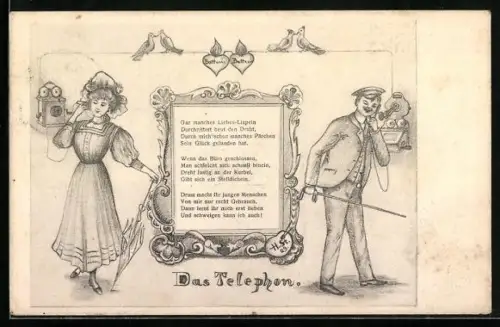 Gar manches Liebes-Lispeln
Durchzittert heut den Draht,
Durch mich schon manches Pärchen
Sein Glück gefunden hat.
Wenn das Büro geschlossen,
Man schleicht sich schnell hinein,
Dreht lustig an der Kurbel,
Gibt sich ein Stelldichein.
Drum macht ihr jungen Menschen
Von mir nur recht Gebrauch,
Dann lernt ihr mich erst lieben
Und schweigen kann ich auch!
Das Telephon.